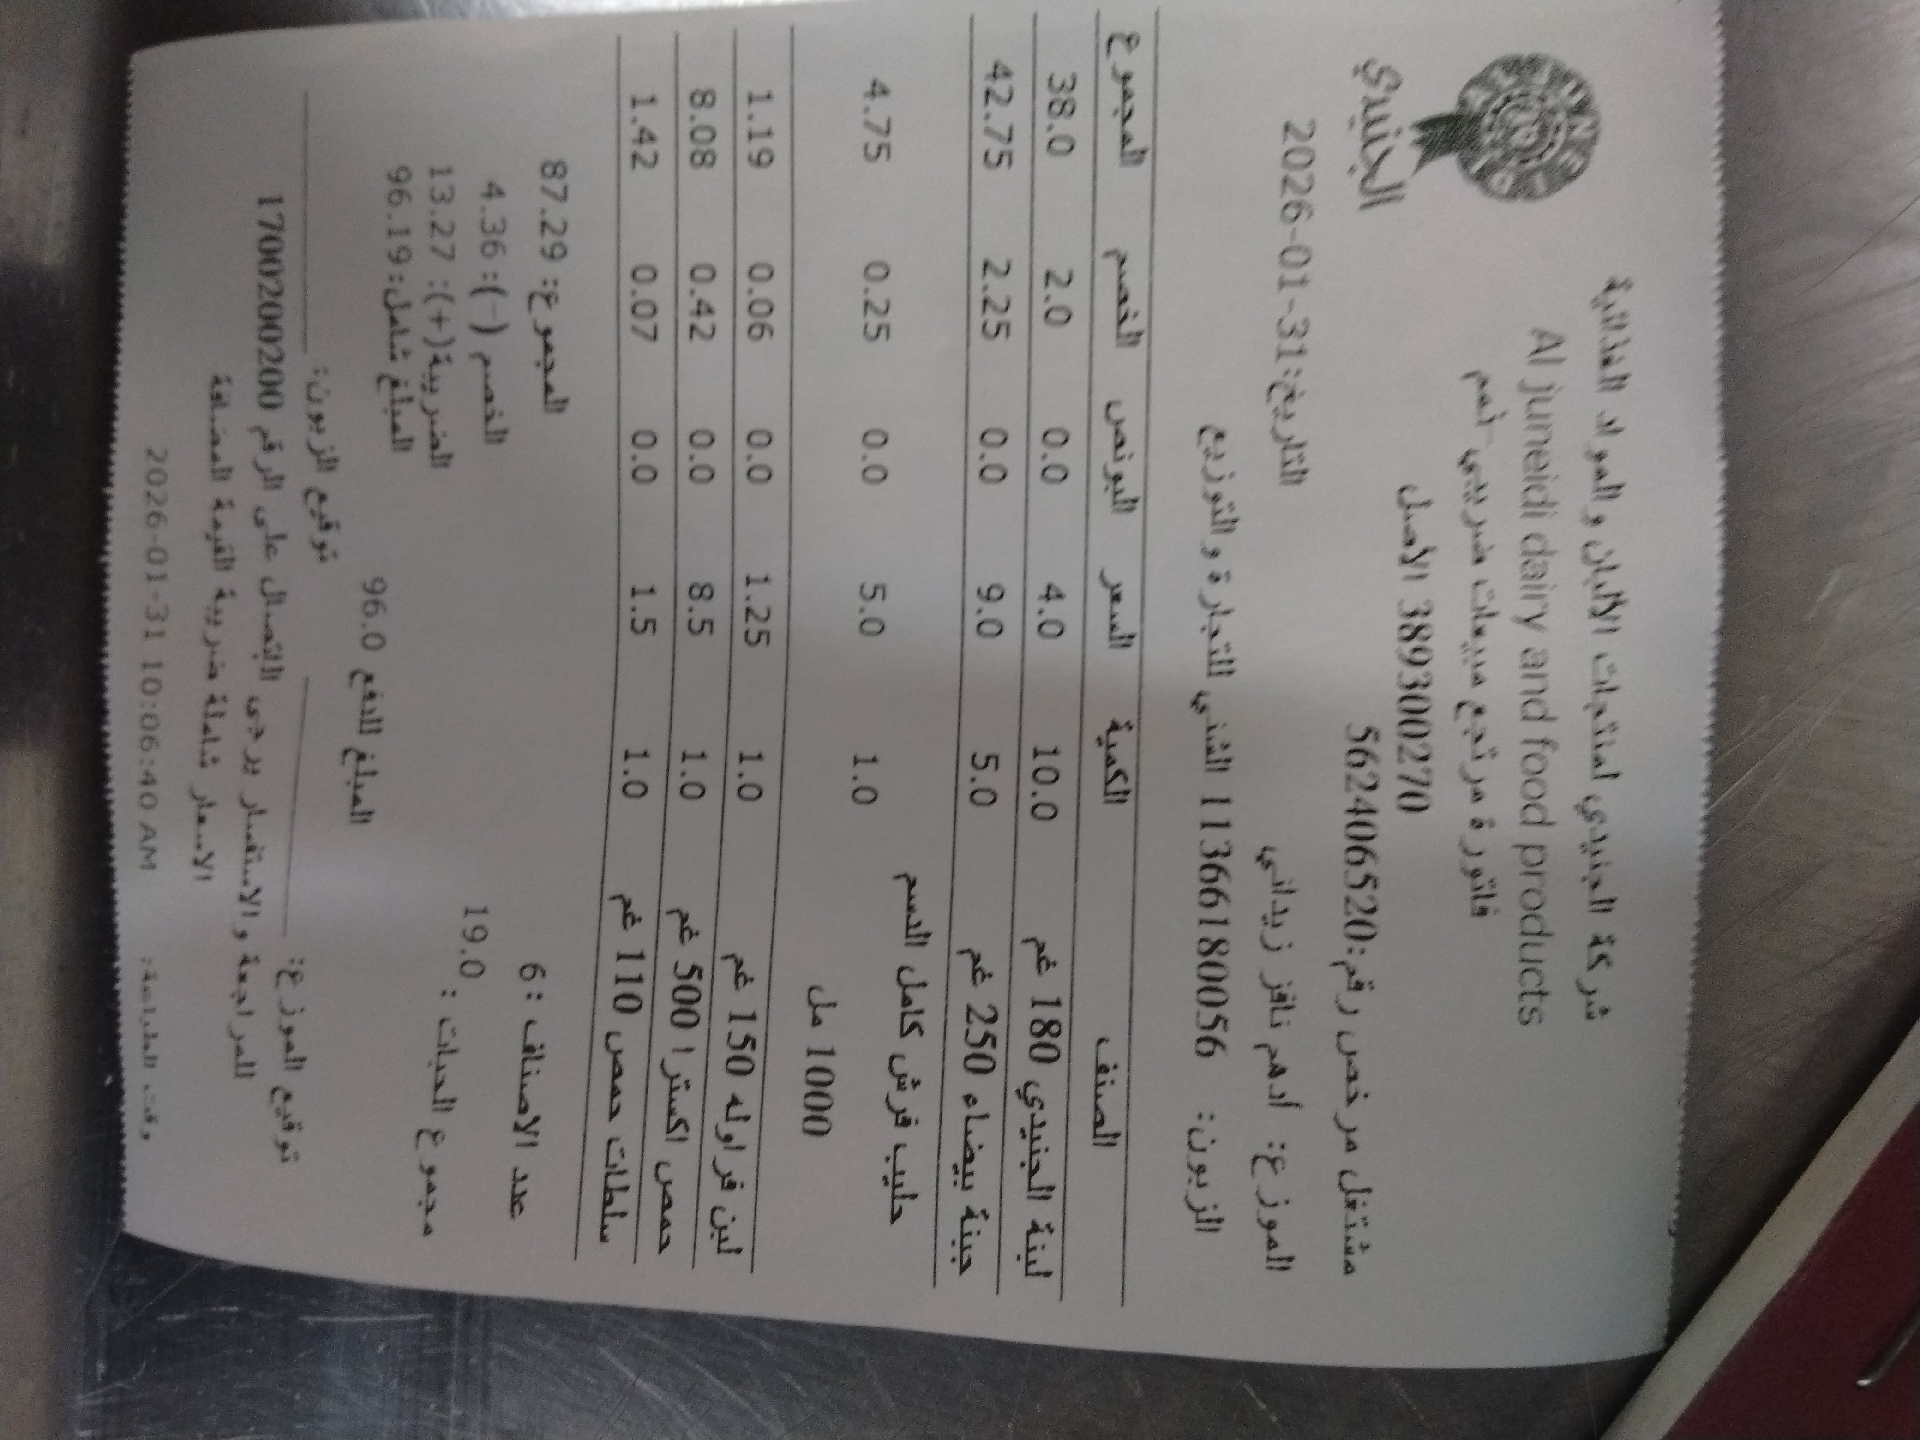 شركة الجنيدي لمنتجات الألبان والمواد الغذائية
Al juneidi dairy and food products
فاتورة مرتجع مبيعات ضريبي-تمم
389300270 الأصل
الجنيدي
مشتغل مرخص رقم:562406520
التاريخ:2026-01-31
الموزع: أدهم نافز زيداني
الزبون: 11366180056 الفني للتجارة والتوزيع
الصنف الكمية السعر البونص الخصم المجموع
لبنة الجنيدي 180 غم 10.0 4.0 0.0 2.0 38.0
جبنة بيضاء 250 غم 5.0 9.0 0.0 2.25 42.75
حليب فرش كامل الدسم 1000 مل 1.0 5.0 0.0 0.25 4.75
لبن فراوله 150 غم 1.0 1.25 0.0 0.06 1.19
حمص اكسترا 500 غم 1.0 8.5 0.0 0.42 8.08
سلطات حمص 110 غم 1.0 1.5 0.0 0.07 1.42
عدد الاصناف : 6
المجموع: 87.29
مجموع الحبات : 19.0
الخصم (-): 4.36
الضريبة(+): 13.27
المبلغ شامل:96.19
المبلغ للدفع 96.0
توقيع الموزع:
توقيع الزبون:
للمراجعة والاستفسار يرجى الاتصال على الرقم 1700200200
الاسعار شاملة ضريبة القيمة المضافة
وقت الطباعة: 2026-01-31 10:06:40 AM